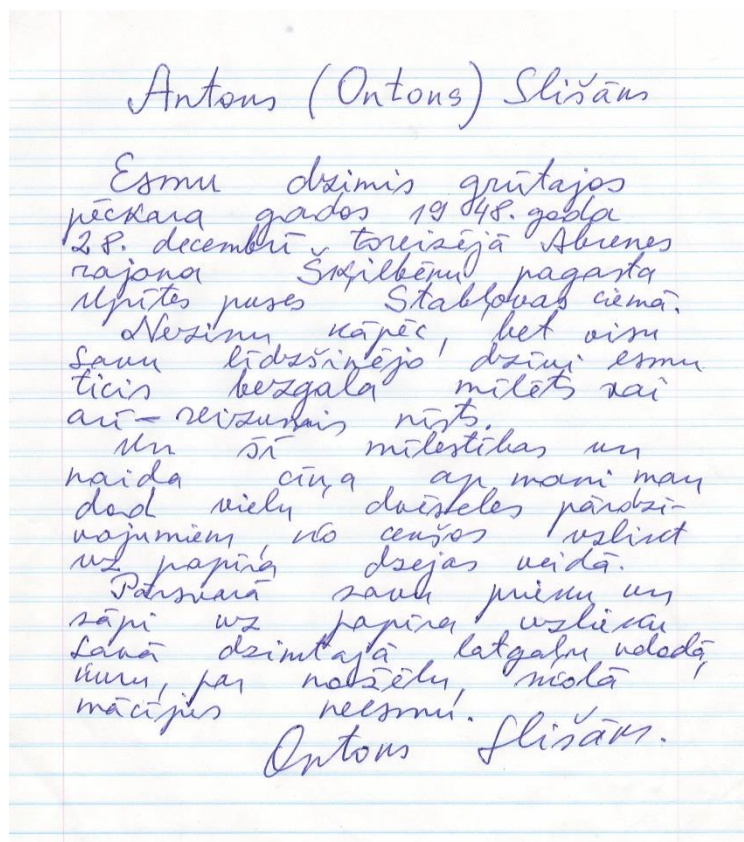 Antons (Ontons) Slišāns
Esmu dzimis grūtajos
pēckara gados 1948. goda
28. decembrī toreizējā Abrenes
rajona Šķilbēnu pagasta
Upītes puses Stabļovas ciemā.
Nezinu kāpēc, bet visu
savu līdzšinējo dzīvi esmu
ticis bezgala mīlēts vai
arī – reizumis nīsts.
Un šī mīlestības un
naida cīņa ap mani man
dod vielu dvēseles pārdzī-
vojumiem, ko cenšos uzliet
uz papīra dzejas veidā.
Pārsvarā savu prieku un
sāpi uz papīra uzlieku
savā dzimtajā latgaļu valodā,
kuru, par nožēlu, skolā
mācījies neesmu.
Ontons Slišāns.